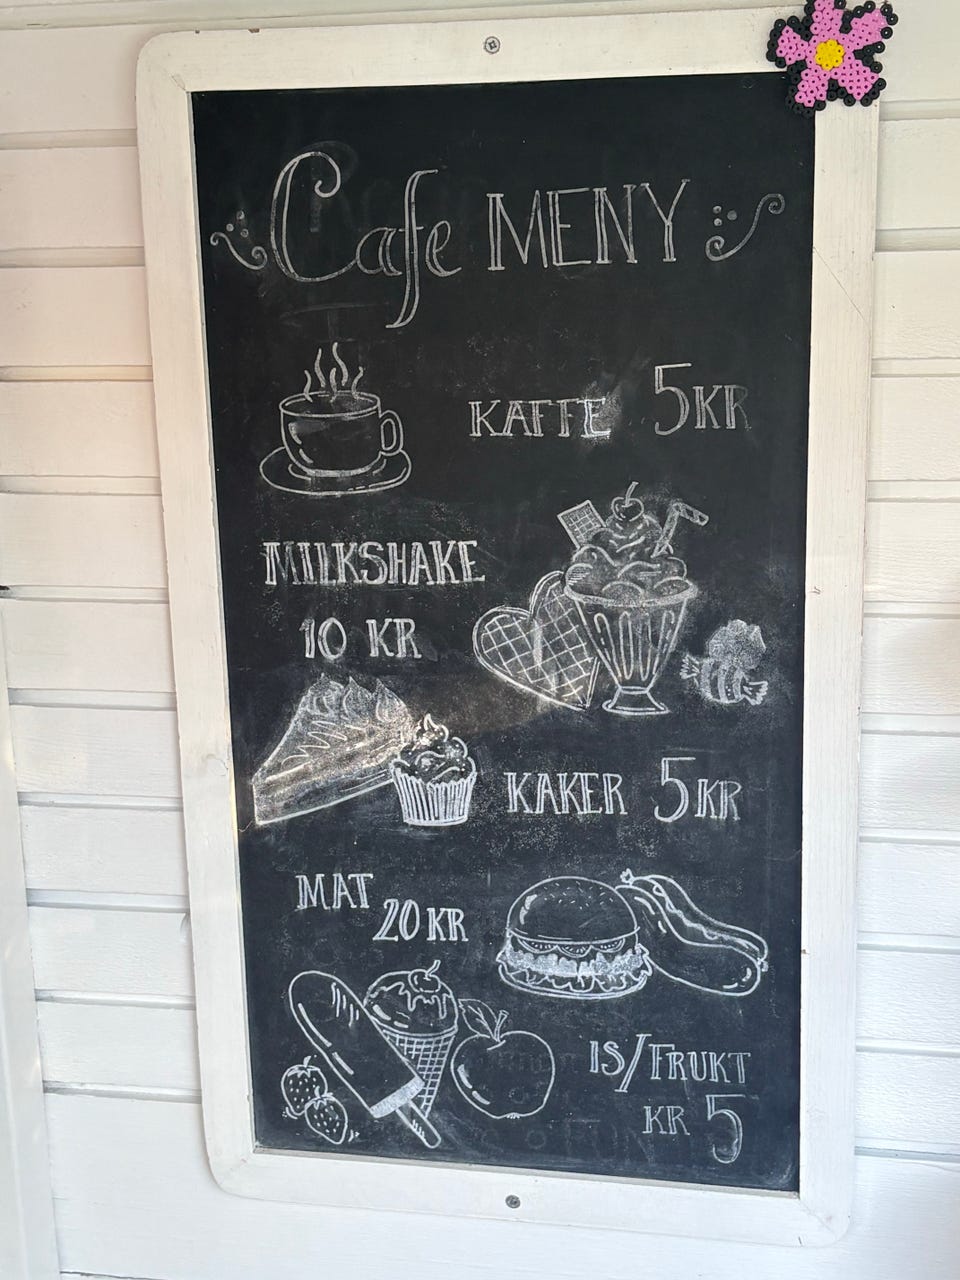 Cafe MENY
KAFFE 5KR
MILKSHAKE
10 KR
KAKER 5KR
MAT
20 KR
IS/FRUKT
KR 5